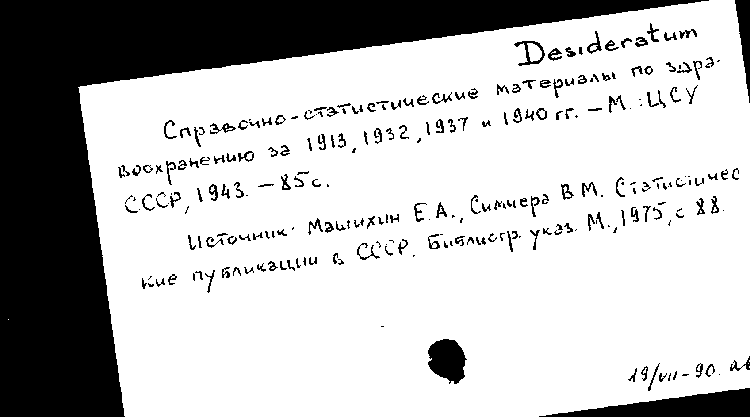 Desideratum
Справочно-статистические материалы по здра-
воохранению за 1913, 1932, 1937 и 1940 гг. – М.: ЦСУ
СССР, 1943. – 85 с.
Источник: Машихин Е.А., Симчера В.М. Статистичес
кие публикации в СССР. Библиогр. указ. М., 1975, с 88.
19/VII-90. ав